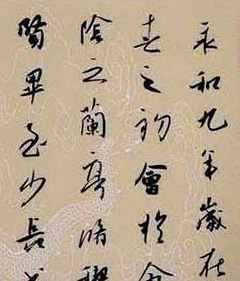 永和九年歲在
春之初會於會
陰之蘭亭脩禊
賢畢至少長咸